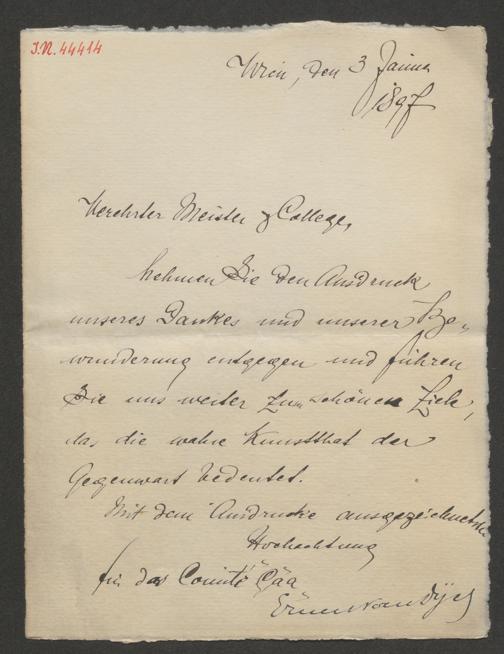 I.N. 44414
Wien, den 3 Januar
1897
Verehrter Meister & College,
Nehmen Sie den Ausdruck
unseres Dankes und unserer Be-
wunderung entgegen und führen
Sie uns weiter zum schönen Ziele,
das die wahre Kunstthat der
Gegenwart bedeutet.
Mit dem Ausdrucke ausgezeichneter
Hochachtung
für das Comité
Ernest van Dyck